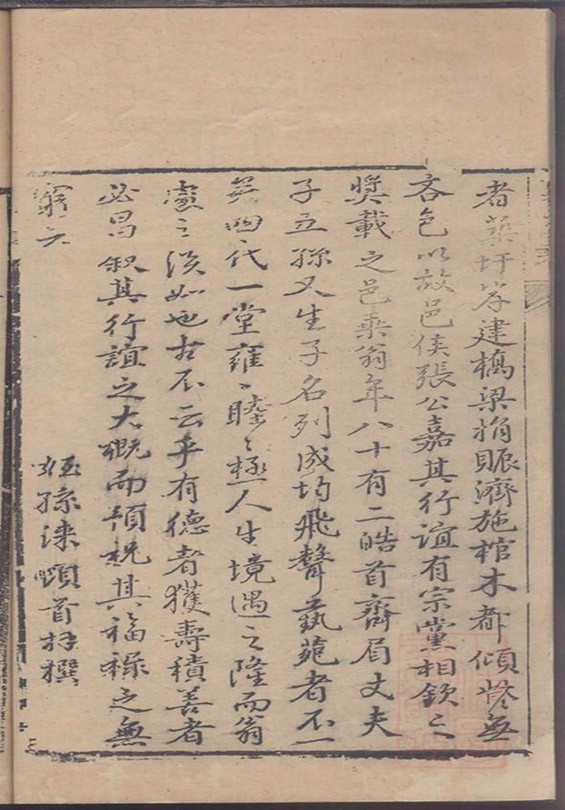 者築圩岸建橋梁捐賑濟施棺木都傾囊無
吝色以故邑侯張公嘉其行誼有宗黨相欽之
獎載之邑乘翁年八十有二皓首齊眉丈夫
子五孫又生子名列成均飛聲藝苑者不一
無四代一堂雍〻睦〻極人生境遇之隆而翁
處之淡如也古不云乎有德者獲壽積善者
必昌叙其行誼之大概而預祝其福祿之無
窮云
姪孫涑頓首拜撰